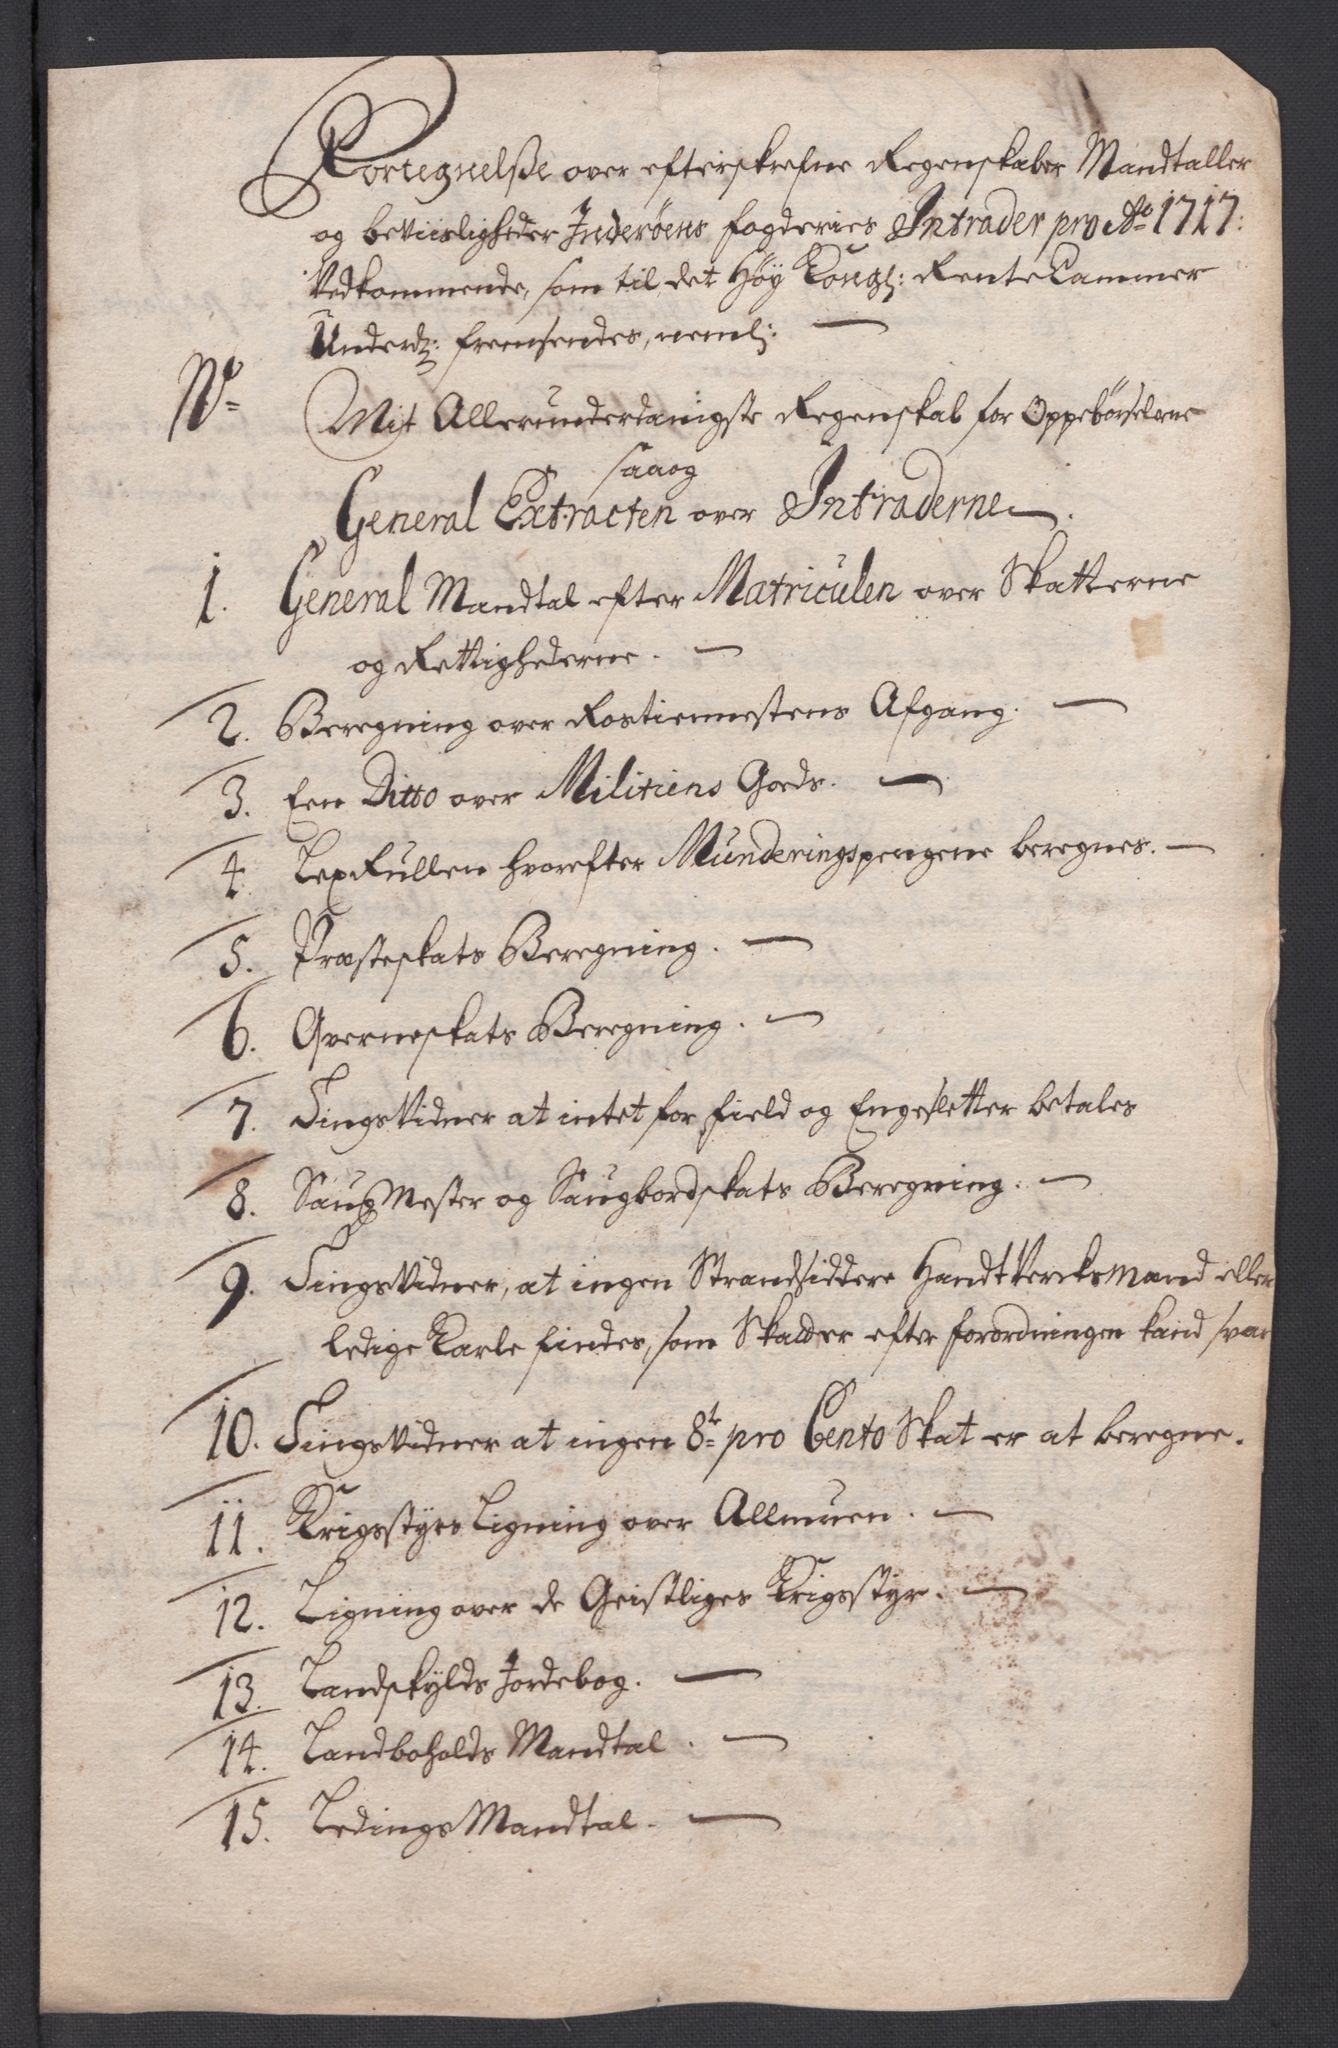 Fortegnelsse over efterskrefne Regenskaber Mandtaller
og beviisligheder Inderöens fogderies Intrader pro Ao 1717:
Vedkommende, som til det Höy Kongl: RenteCammer
Underd: fremsendes, neml:
No
Mit Allerunderdanigste Regenskab for Oppebörselerne
saaog
General Extracten over Intraderne.
1. General Mandtal efter Matriculen over Skatterne
og Rettighederne.
2. Beregning over Rostiennestens Afgang.
3. Een Ditto over Militiens Goeds.
4. LegRullen hvorefter Munderingspengene beregnes.
5. Præsteskats Beregning.
6. Qverneskats Beregning.
7. TingsVidner at intet for field og Engesletter betales
8. SaugMester og Saugbordskats Beregning.
9. TingsVidner, at ingen Strandsiddere HandtVercksmænd eller
ledige Karle findes, som Skatter efter forordningen kand svar
10. TingsVidner at ingen 8te pro Cento Skat er at beregne.
11. Krigsstyrs Ligning over Allmuen.
12. Ligning over de Geistliges Krigsstyr.
13. Landskylds Jordebog.
14. Landboholds Mandtal.
15. Ledings Mandtal.